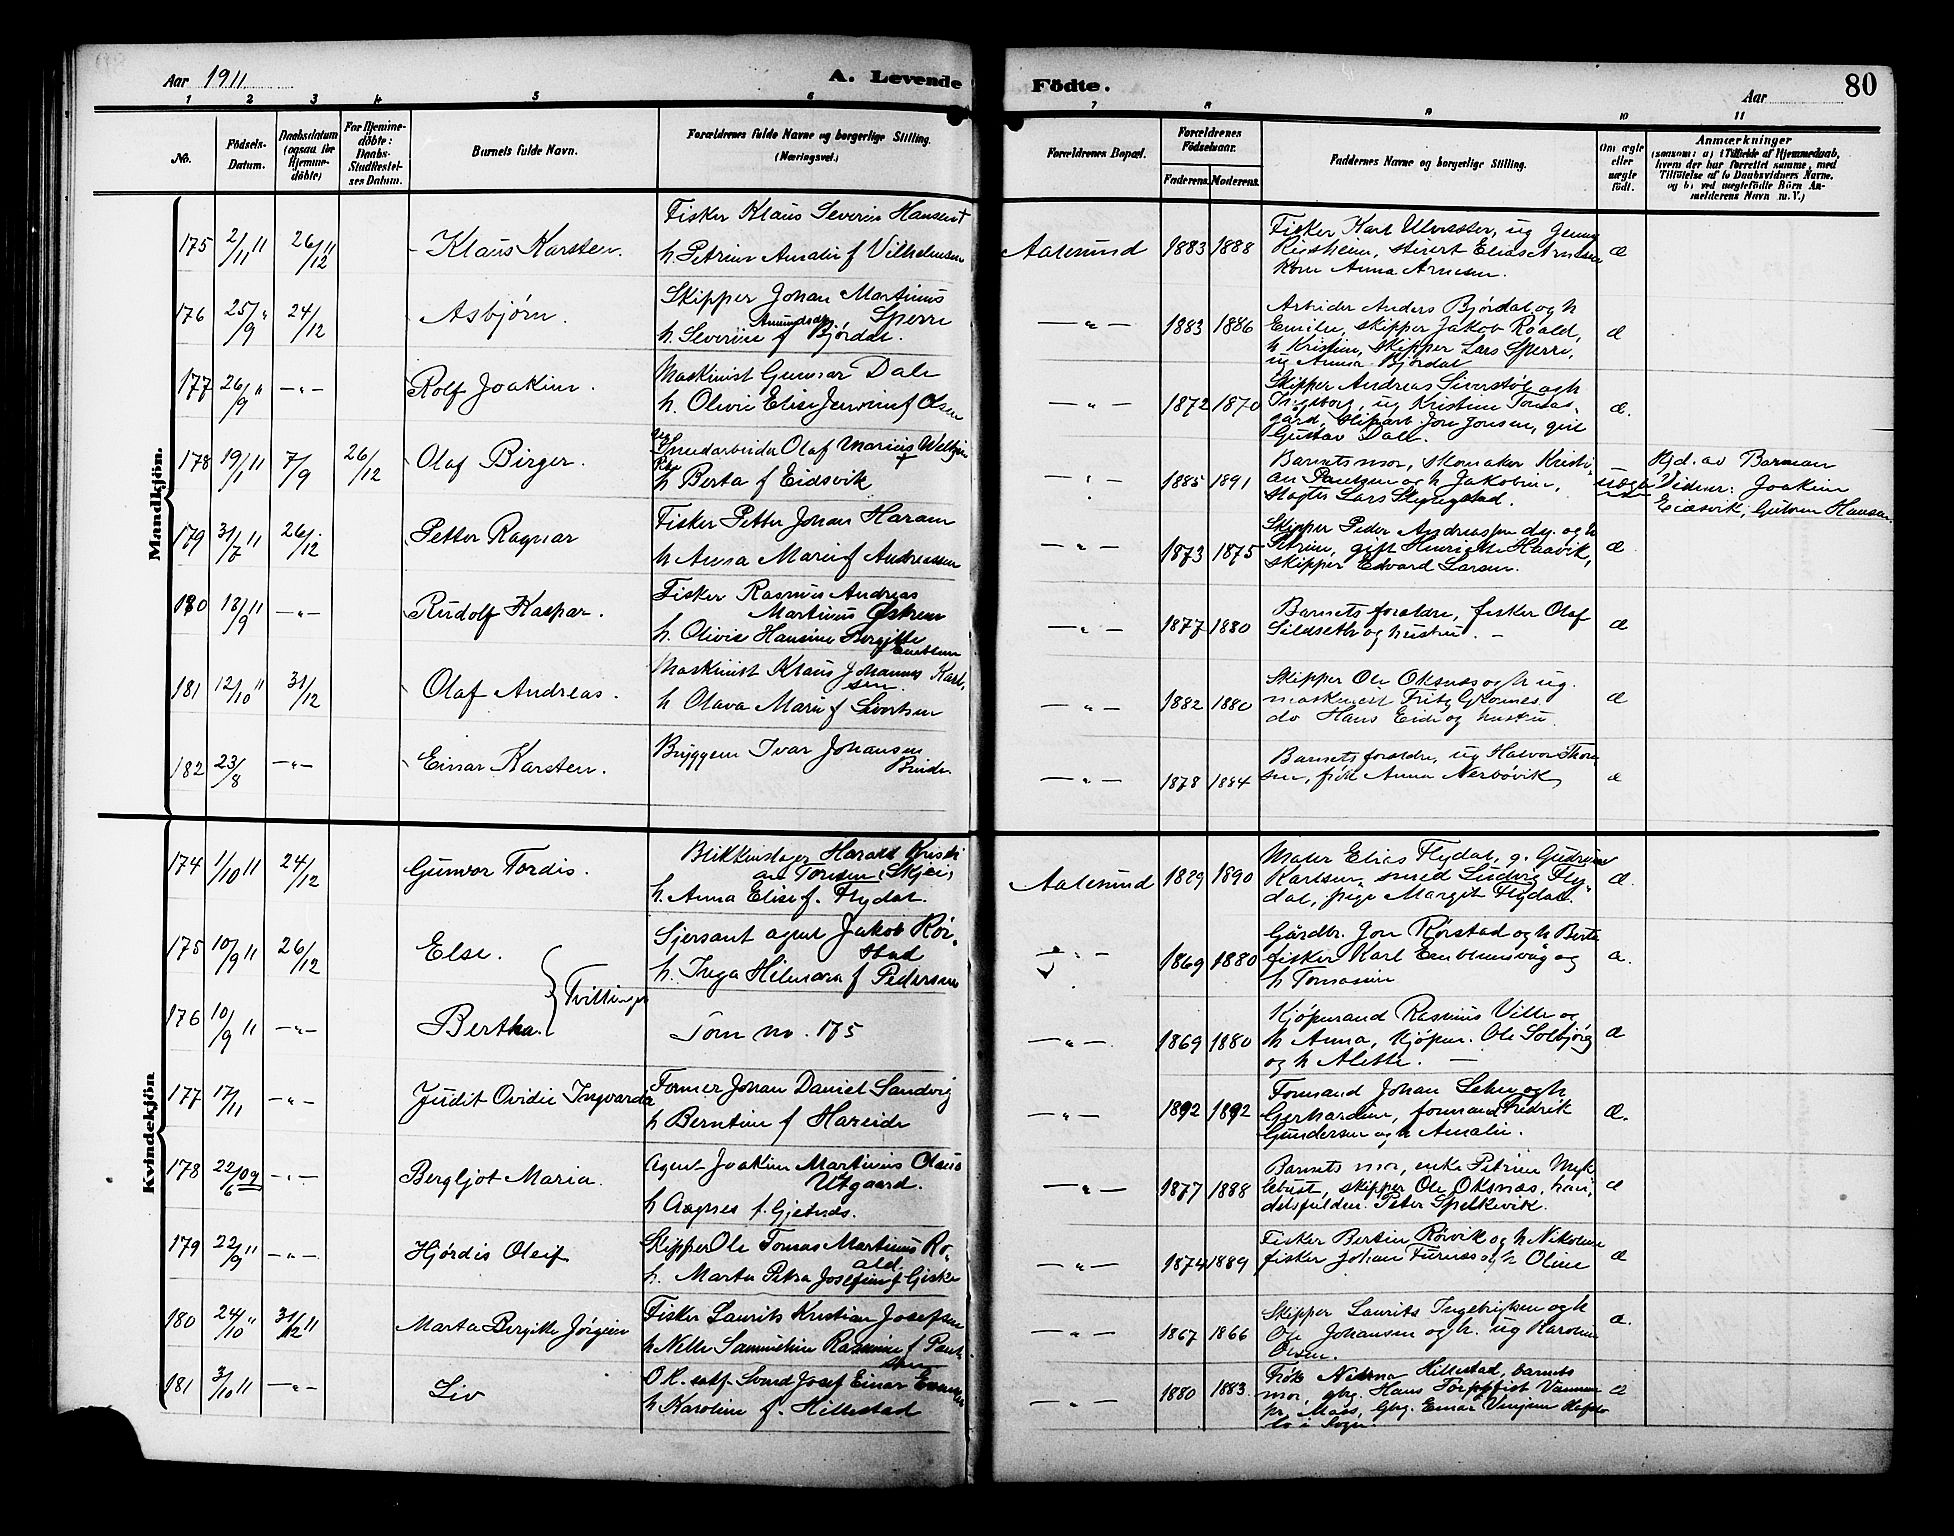 Aar 1911
A. Levende
Födte.
Aar
80
1 2 3 4 5 6 7 8 9 10 11
No.
Födsels-
Datum.
Daabsdatum
(ogsaa for
Hjemme-
döbte)
For Hjemme-
döbte:
Daabs-
Stadfæstel-
ses Datum.
Barnets fulde Navn.
Forældrenes fulde Navne og borgerlige Stilling.
(Næringsvei.)
Forældrenes Bopæl.
Forældrenes
Födselsaar.
Faderens. Moderens.
Faddernes Navne og borgerlige Stilling.
Om ægte
eller
uægte
födt.
Anmærkninger
(saasom: a) i Tilfælde af Hjemmedaab,
hvem der har forrettet samme, med
Tilföielse af to Daabsvidners Navne,
og b) ved uægtefödte Börn An-
melderens Navn m. V.)
Mandkjön.
175 2/11 11 26/12 11
Klaus Karsten.
Fisker Klaus Severin Hansen +
h. Petrine Amalie f Vilhelmsen
Aalesund
1883 1888
Fisker Karl Ulvesæter, ug
Elias Arnesen
Kone Anna Arnesen.
æ
176 25/9 " 24/12
Asbjørn.
Skipper Johan Martinus
Sperre
Amundsdtr
h. Severine f Bjørdal.
— " —
1883 1886
Arbeider Anders Bjørdal og h
Emilie, skipper Jakob Roald,
h Kristine, skipper Lars Sperre,
ug Anna Bjørdal
æ
177 26/9 " — " —
Rolf Joakim.
Maskinist Gunnar Dale
h. Olivie Elise f Olsen
— " —
1872 1870
Skipper Andreas Siverstøl og h
Ingeborg, ug Kristine Tomas-
gård, Jon Jonsen, gut
Gustav Dale.
æ.
178 19/1 11 7/9 26/12
Olaf Birger.
Olaf Marius
h Berta f Eidsvik
— " —
1885 1891
Barnets mor, skomaker Kristi-
an Paulsen og h Jakobine,
Slagter Lars
uægte
Hjd. av Barman
Vidner: Joakim
Eidsvik, Hansen.
179 31/7 11 26/12
Petter Ragnar
Fisker Petter Johan Haram
h Anna Marie f Andreassen
— " —
1873 1875
Skipper Peder Andreassen og h
Petrine, gift Henriette Haavik,
skipper Edvard Larsen.
æ
180 18/9 11 — " —
Rudolf Kaspar.
Fisker Rasmus Andreas
Martinus Østrem
h. Olivie Hansine Bergitte
f Emblem
— " —
1877 1880
Barnets forældre, fisker Olaf
Sildseth og hustru. —
æ
181 12/10 " 31/12
Olaf Andreas.
Maskinist Klaus Johannes Karl-
sen.
h Olava Marie f Sivertsen
— " —
1882 1880
Skipper Ole Oksnæs og h ug.
maskinist Fritz
do Hans Eide og hustru.
æ
182 23/8 — " —
Einar Karsten.
Ivar Johansen
— " —
1878 1884
Barnets forældre, ug Halvor Thor-
sen, frk Anna Nerbøvik,
æ
Kvindekjön
174 1/10 11 24/12
Gunvor Tordis.
Blikkenslager Harald Kristi
an Tonsen (Skjei)
h. Anna Elise f. Flydal.
Aalesund
1889 1890
Maler Elias Flydal, g. Gudrun
Karlsen, smed Ludvig Fly-
dal, pige Margit Flydal.
æ.
175 10/9 11 26/12
Else.
Tvillinger
Sjersant agent Jakob Rør-
stad
h. Inga Hilmara f Pedersen
— " —
1869 1880
Gårdbr. Jon Rørstad og h Berte
fisker Karl Emblemsvåg og
h Tomasine
æ.
176 10/9 11 — " —
Bertha.
Som no. 175
— " —
1869 1880
Kjøpmand Rasmus Ville og
h Anna, kjøpm. Ole Solbjørg
og h Alette. —
æ
177 17/11 — " —
Judit Ovidie Ingvarda
Former Johan Daniel Sandvig
h Berntine f Hareide
— " —
1892 1892
Formand Johan og h
Gerhardine, formand Fredrik
Gundersen og h Amalie.
æ.
178 22/6 09 — " —
Bergljot Maria.
Agent Joakim Martinus Olaus
Utgaard.
h Aagnes f. Gjetnæs.
— " —
1877 1888
Barnets mor, enke Petrine Myk
lebust, skipper Ole Oksnæs, han-
delsfuldm. Peter Spelkevik.
æ
179 22/9 11 — " —
Hjørdis Oleif
Skipper Ole Tomas Martinus Ro-
ald
h. Marta Petra Josefine f Giske
— " —
1874 1889
Fisker Bertin Rørvik og h Nikoline
fisker Johan Furnæs og h Oline
æ
180 24/10 " 31/12 11
Marta Bergitte Jørgine
Fisker Laurits Kristian Josefsen
h Nelle Samueline Rasmine f Paul-
sen
— " —
1867 1866
Skipper Laurits Ingebrigtsen og h
Ole Johansen og h. ug Karoline
Olsen.
æ.
181 3/10 11 — " —
Liv
Svend Josef Einar
h Karoline f. Hillestad
— " —
1880 1883.
Frk Hillestad, barnets
mor, gbr. Hans
Gbr. Einar Vinjum
i Sogn.
æ